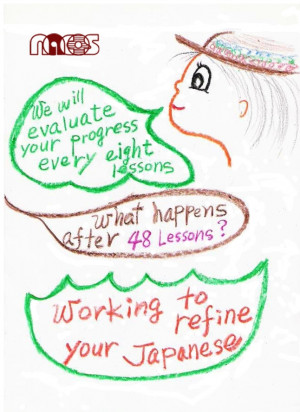 We will
evaluate
your progress
every eight
lessons
what happens
after 48 Lessons?
Working to
refine
your Japanese